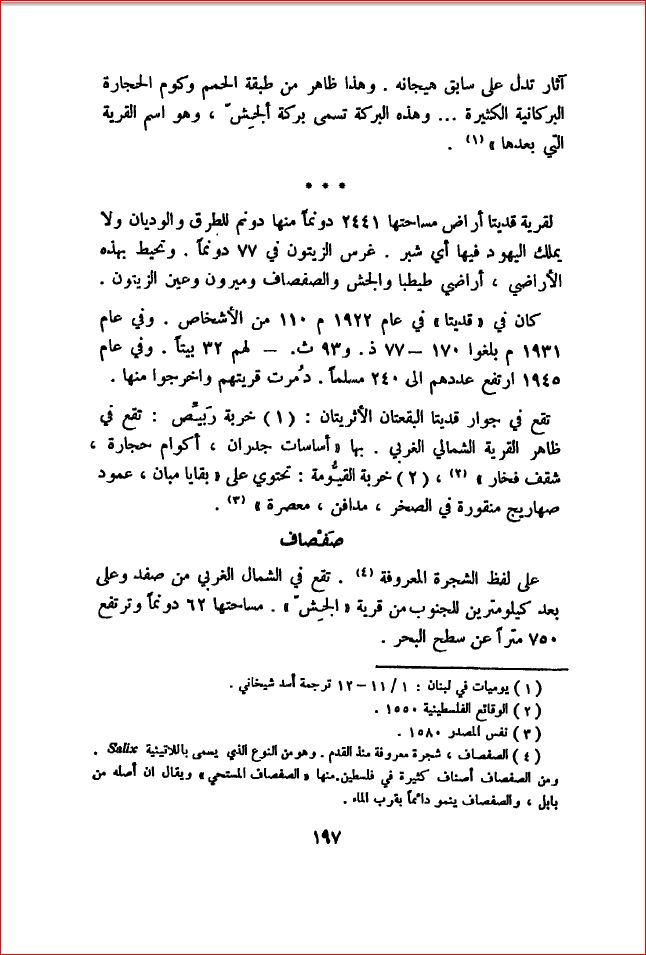 آثار تدل على سابق هيجانه . وهذا ظاهر من طبقة الحمم وكوم الحجارة
البركانية الكثيرة ... وهذه البركة تسمى بركة ألجِشّ ، وهو اسم القرية
التي بعدها » (١) .
* * *
لقرية قديتا أراض مساحتها ٢٤٤١ دونماً منها دونم للطرق والوديان ولا
يملك اليهود فيها أي شبر . غرس الزيتون في ٧٧ دونماً . وتحيط بهذه
الأراضي ، أراضي طيطبا والجش والصفصاف وميرون وعين الزيتون .
كان في « قديتا » في عام ١٩٢٢ م ١١٠ من الأشخاص . وفي عام
١٩٣١ م بلغوا ١٧٠ – ٧٧ ذ. و٩٣ ث. – لهم ٣٢ بيتاً . وفي عام
١٩٤٥ ارتفع عددهم الى ٢٤٠ مسلماً . دُمرت قريتهم واخرجوا منها .
تقع في جوار قديتا البقعتان الأثريتان : (١) خربة رَبيْص : تقع في
ظاهر القرية الشمالي الغربي . بها « أساسات جدران ، أكوام حجارة ،
شقف فخار » (٢) ، (٢) خربة القيُّومة : تحتوي على « بقايا مبان ، عمود
صهاريج منقورة في الصخر ، مدافن ، معصرة » (٣) .
صَفْصاف
على لفظ الشجرة المعروفة (٤) . تقع في الشمال الغربي من صفد وعلى
بعد كيلومترين للجنوب من قرية « الجِشّ » . مساحتها ٦٢ دونماً وترتفع
٧٥٠ متراً عن سطح البحر .
(١) يوميات في لبنان : ١ / ١١ – ١٢ ترجمة أسد شيخاني .
(٢) الوقائع الفلسطينية ١٥٥٠ .
(٣) نفس المصدر ١٥٨٠ .
(٤) الصفصاف ، شجرة معروفة منذ القدم . وهو من النوع الذي يسمى باللاتينية Salix .
ومن الصفصاف أصناف كثيرة في فلسطين.منها « الصفصاف المستحي » ويقال ان أصله من
بابل ، والصفصاف ينمو دائماً بقرب الماء .
١٩٧